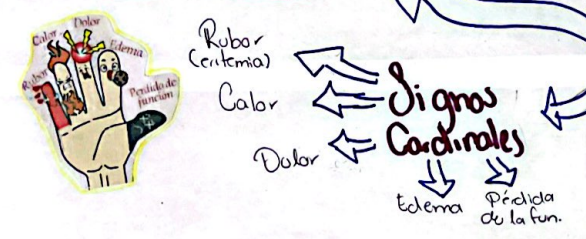 Calor
Dolor
Edema
Rubor
Perdida de
función
Rubor
(eritemia)
Calor
Dolor
Signos
Cardinales
Edema
Pérdida
de la fun.